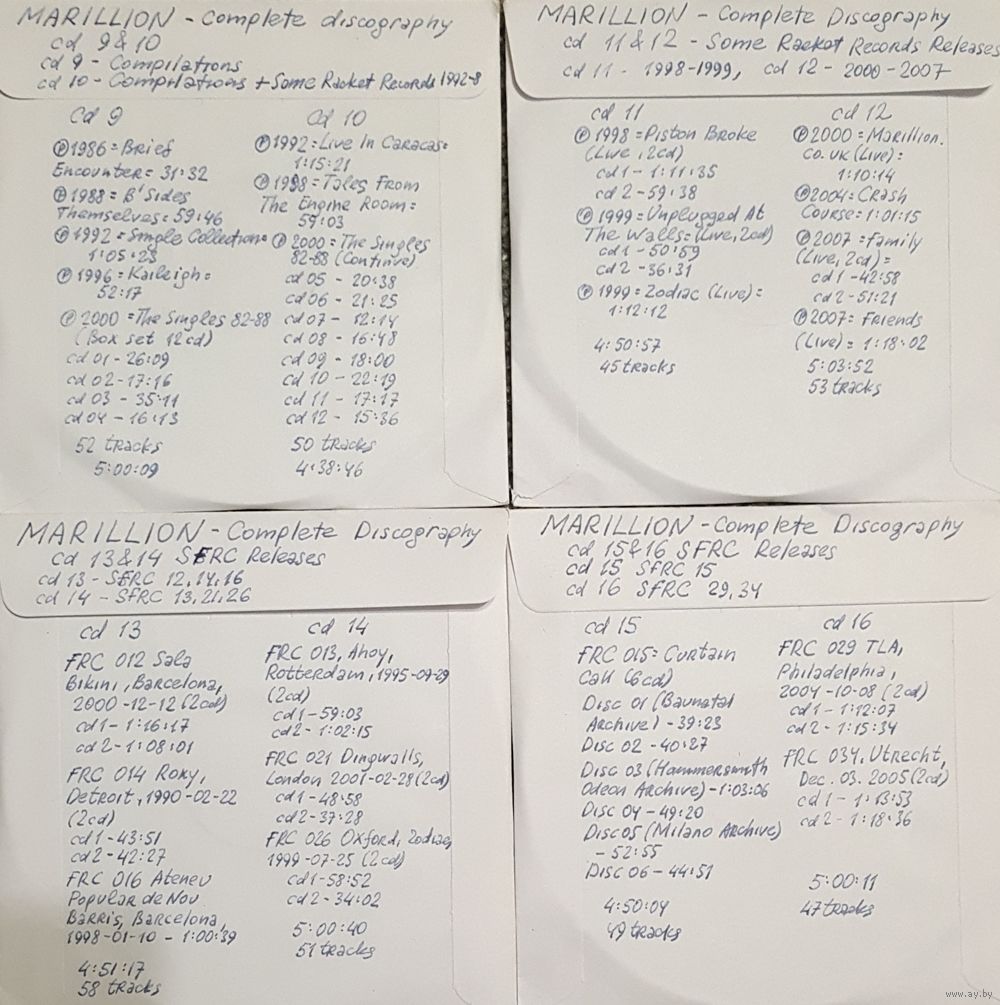 MARILLION - Complete discography
cd 9&10
cd 9 - Compilations
cd 10 - Compilations + Some Racket Records 1992-8
cd 9
Ⓟ1986 = Brief
Encounter = 31:32
Ⓟ1988 = B'Sides
Themselves = 59:46
Ⓟ1992 = Single Collection =
1:05:23
Ⓟ1996 = Kaileigh =
52:17
Ⓟ2000 = The Singles 82-88
(Box set 12cd)
cd 01 - 26:09
cd 02 - 17:16
cd 03 - 35:11
cd 04 - 16:13
52 tracks
5:00:09
cd 10
Ⓟ1992 = Live In Caracas =
1:15:21
Ⓟ1998 = Tales From
The Engine Room =
59:03
Ⓟ2000 = The Singles
82-88 (Continue)
cd 05 - 20:38
cd 06 - 21:25
cd 07 - 12:14
cd 08 - 16:48
cd 09 - 18:00
cd 10 - 22:19
cd 11 - 17:17
cd 12 - 15:36
50 tracks
4:38:46
MARILLION - Complete Discography
cd 11 & 12 - Some Racket Records Releases
cd 11 - 1998-1999, cd 12 - 2000-2007
cd 11
Ⓟ1998 = Piston Broke
(Live, 2cd)
cd 1 - 1:11:35
cd 2 - 59:38
Ⓟ1999 = Unplugged At
The Walls = (Live, 2cd)
cd 1 - 50:59
cd 2 - 36:31
Ⓟ1999 = Zodiac (Live) =
1:12:12
4:50:57
45 tracks
cd 12
Ⓟ2000 = Marillion.
co.uk (Live) =
1:10:14
Ⓟ2004 = Crash
Course = 1:01:15
Ⓟ2007 = Family
(Live, 2cd) =
cd 1 - 42:58
cd 2 - 51:21
Ⓟ2007 = Friends
(Live) = 1:18:02
5:03:52
53 tracks
MARILLION - Complete Discography
cd 13&14 SFRC Releases
cd 13 - SFRC 12,14,16
cd 14 - SFRC 13,21,26
cd 13
FRC 012 Sala
Bikini, Barcelona,
2000-12-12 (2cd)
cd 1 - 1:16:17
cd 2 - 1:08:01
FRC 014 Roxy,
Detroit, 1990-02-22
(2cd)
cd 1 - 43:51
cd 2 - 42:27
FRC 016 Ateneu
Popular de Nou
Barris, Barcelona,
1998-01-10 - 1:00:39
4:51:17
58 tracks
cd 14
FRC 013, Ahoy,
Rotterdam, 1995-09-29
(2cd)
cd 1 - 59:03
cd 2 - 1:02:15
FRC 021 Dingwalls,
London 2001-02-28 (2cd)
cd 1 - 48:58
cd 2 - 37:28
FRC 026 Oxford, Zodiac,
1999-07-25 (2cd)
cd 1 - 58:52
cd 2 - 34:02
5:00:40
51 tracks
MARILLION - Complete Discography
cd 15&16 SFRC Releases
cd 15 SFRC 15
cd 16 SFRC 29,34
cd 15
FRC 015: Curtain
Call (6cd)
Disc 01 (Baunatal
Archive) - 39:23
Disc 02 - 40:27
Disc 03 (Hammersmith
Odeon Archive) - 1:03:06
Disc 04 - 49:20
Disc 05 (Milano Archive)
- 52:55
Disc 06 - 44:51
4:50:04
49 tracks
cd 16
FRC 029 TLA,
Philadelphia,
2004-10-08 (2cd)
cd 1 - 1:12:07
cd 2 - 1:15:34
FRC 034, Utrecht,
Dec. 03. 2005 (2cd)
cd 1 - 1:13:53
cd 2 - 1:18:36
5:00:11
47 tracks
www.ay.by